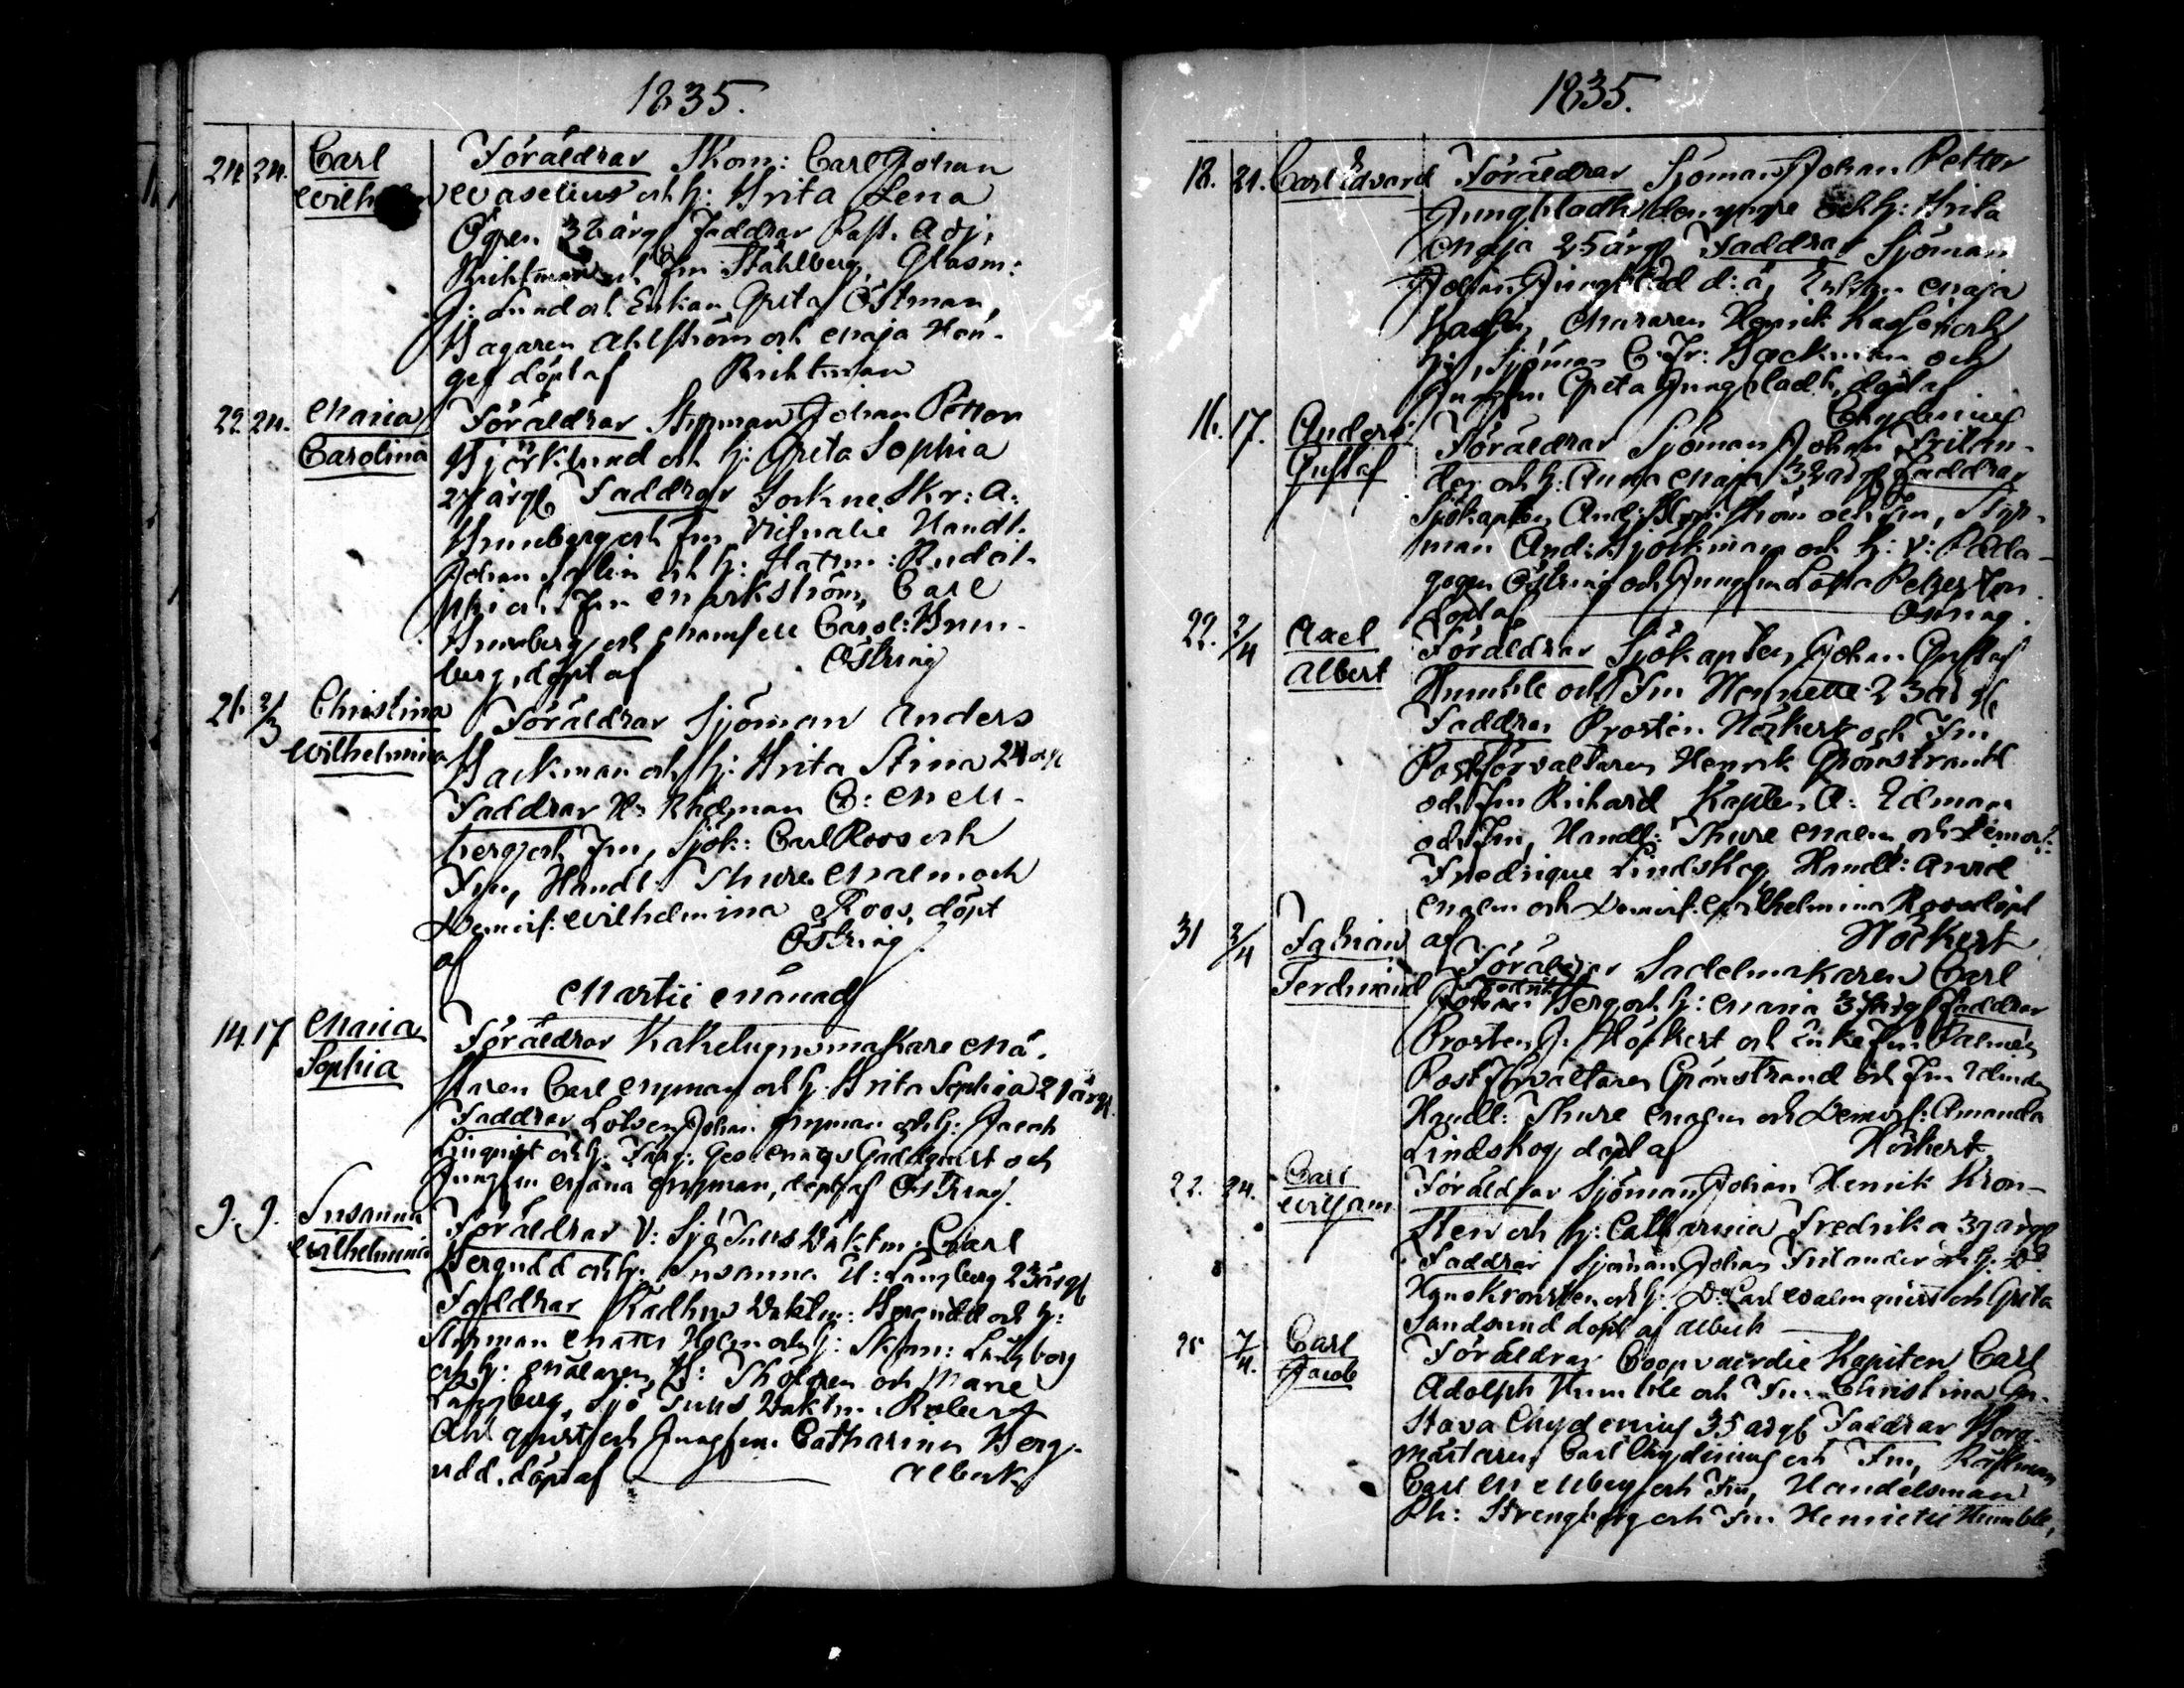 1835.
24. 24. Carl Wilhelm Föräldrar Skom: Carl Johan
Waselius och h: Brita Lena
Ögren 32 årg Faddrar Past. Adj.
Bruhtman och Fru Ståhlberg, Glasm:
Lund och Enkan Greta Östman,
Bagaren Ahlström och Maja
döpt af Bruhtman
22. 24. Maria Carolina Föräldrar Styrman Johan Petter
Björklund och h: Greta Sophia
27 årg Faddrar Sockne Skr: A:
Brunberg och Fru Handl:
Johan och h: Hattm:
och Fru Markström, Carl
Brunberg och Mamsell Carol: Brun-
berg, döpt af Östring
26. 2/3 Christina Wilhelmina Föräldrar Sjöman Anders
Backman och h: Brita Stina 24 årg
Faddrar Hr Rådman C: Mell-
berg och Fru, Sjök: Carl Roos och
Fru, Handl: Thure Malm och
Demois: Wilhelmina Roos, döpt
af Östring.
Martii Månad
14. 17 Maria Sophia Föräldrar Kakelugnsmakare Mä-
staren Carl Nyman och h: Brita Sophia 21 årg
Faddrar Lotsen Johan Nyman och h: Jacob
Linquist och h: Färg: Ges: Magn Gaddquist och
Jungfru Maria Nyman, döpt af Östring.
9. 9. Susanna Wilhelmina Föräldrar V: Sjö Tulls Vaktm: Carl
Bergudd och h: Susanna U: Långberg 23 årg
Faddrar Rådhus Vaktm: Bergudd och h:
Styrman Matts Holm och h: Skom: Långberg
och h: Målaren B: Thölgren och Marie
Långberg, Sjö Tulls Vaktm: Robert
Ahlquist och Jungfru Catharina Berg-
udd, döpt af Alberk
1835.
18. 21. Carl Edvard Föräldrar Sjöman Johan Petter
Jungbladh den yngre och h: Brita
Maja 25 årg Faddrar Sjöman
Johan Jungblad d: ä, Enkan Maja
Hasse, Muraren Henrik Hasse och
h:, Sjöman C: Fr: Backman och
Jungfru Greta Jungbladh, döpt af
Chydenius
16. 17. Anders Gustaf Föräldrar Sjöman Johan Frilan-
der och h: Anna Maja 32 årg Faddrar
Sjökapten And: Blomström och Fru, Styr-
man And: Björkman och h: V: Peda-
gogen Östring och Jungfru Lovisa Peterson
döpt af Östring.
22. 2/4 Axel Albert Föräldrar Sjökapten Johan Gustaf
Humble och Fru Henriette 23 årg
Faddrar Prosten Höckert och Fru,
Postförvaltaren Henrik Grönstrand
och Fru Richard Kapten A: Edman
och Fru, Handl: Thure Malm och Demois:
Fredrique Lindskog, Handl: Aurel
Malm och Demois: Wilhelmina Roos döpt
af Höckert
31 3/4 Fabian Ferdinand Föräldrar Sadelmakaren Carl
Fredrik
Johan Berg och h: Maria årg Faddrar
Prosten J. Höckert och Enke Fru Palmén
Postförvaltaren Grönstrand och Fru
Handl: Thure Malm och Demois: Amanda
Lindskog döpt af Höckert
22. 24. Carl Wiljam Föräldrar Sjöman Johan Henrik Kron-
sten och h: Catharina Fredrika 39 årg
Faddrar Sjöman Johan Frilander och h: Do
Kronsten och h: Do Carl Walmquist och Greta
Sandsund döpt af Alberk
25 7/4. Carl Jacob Föräldrar Coopvaerdie Kapiten Carl
Adolph Humble och Fru Christina Gu-
stava Chydenius 35 årg Faddrar Borg-
mästaren Carl Chydenius och Fru, Rådman
Carl Mellberg och Fru, Handelsman
Ph: Strengberg och Fru Henriette Humble,